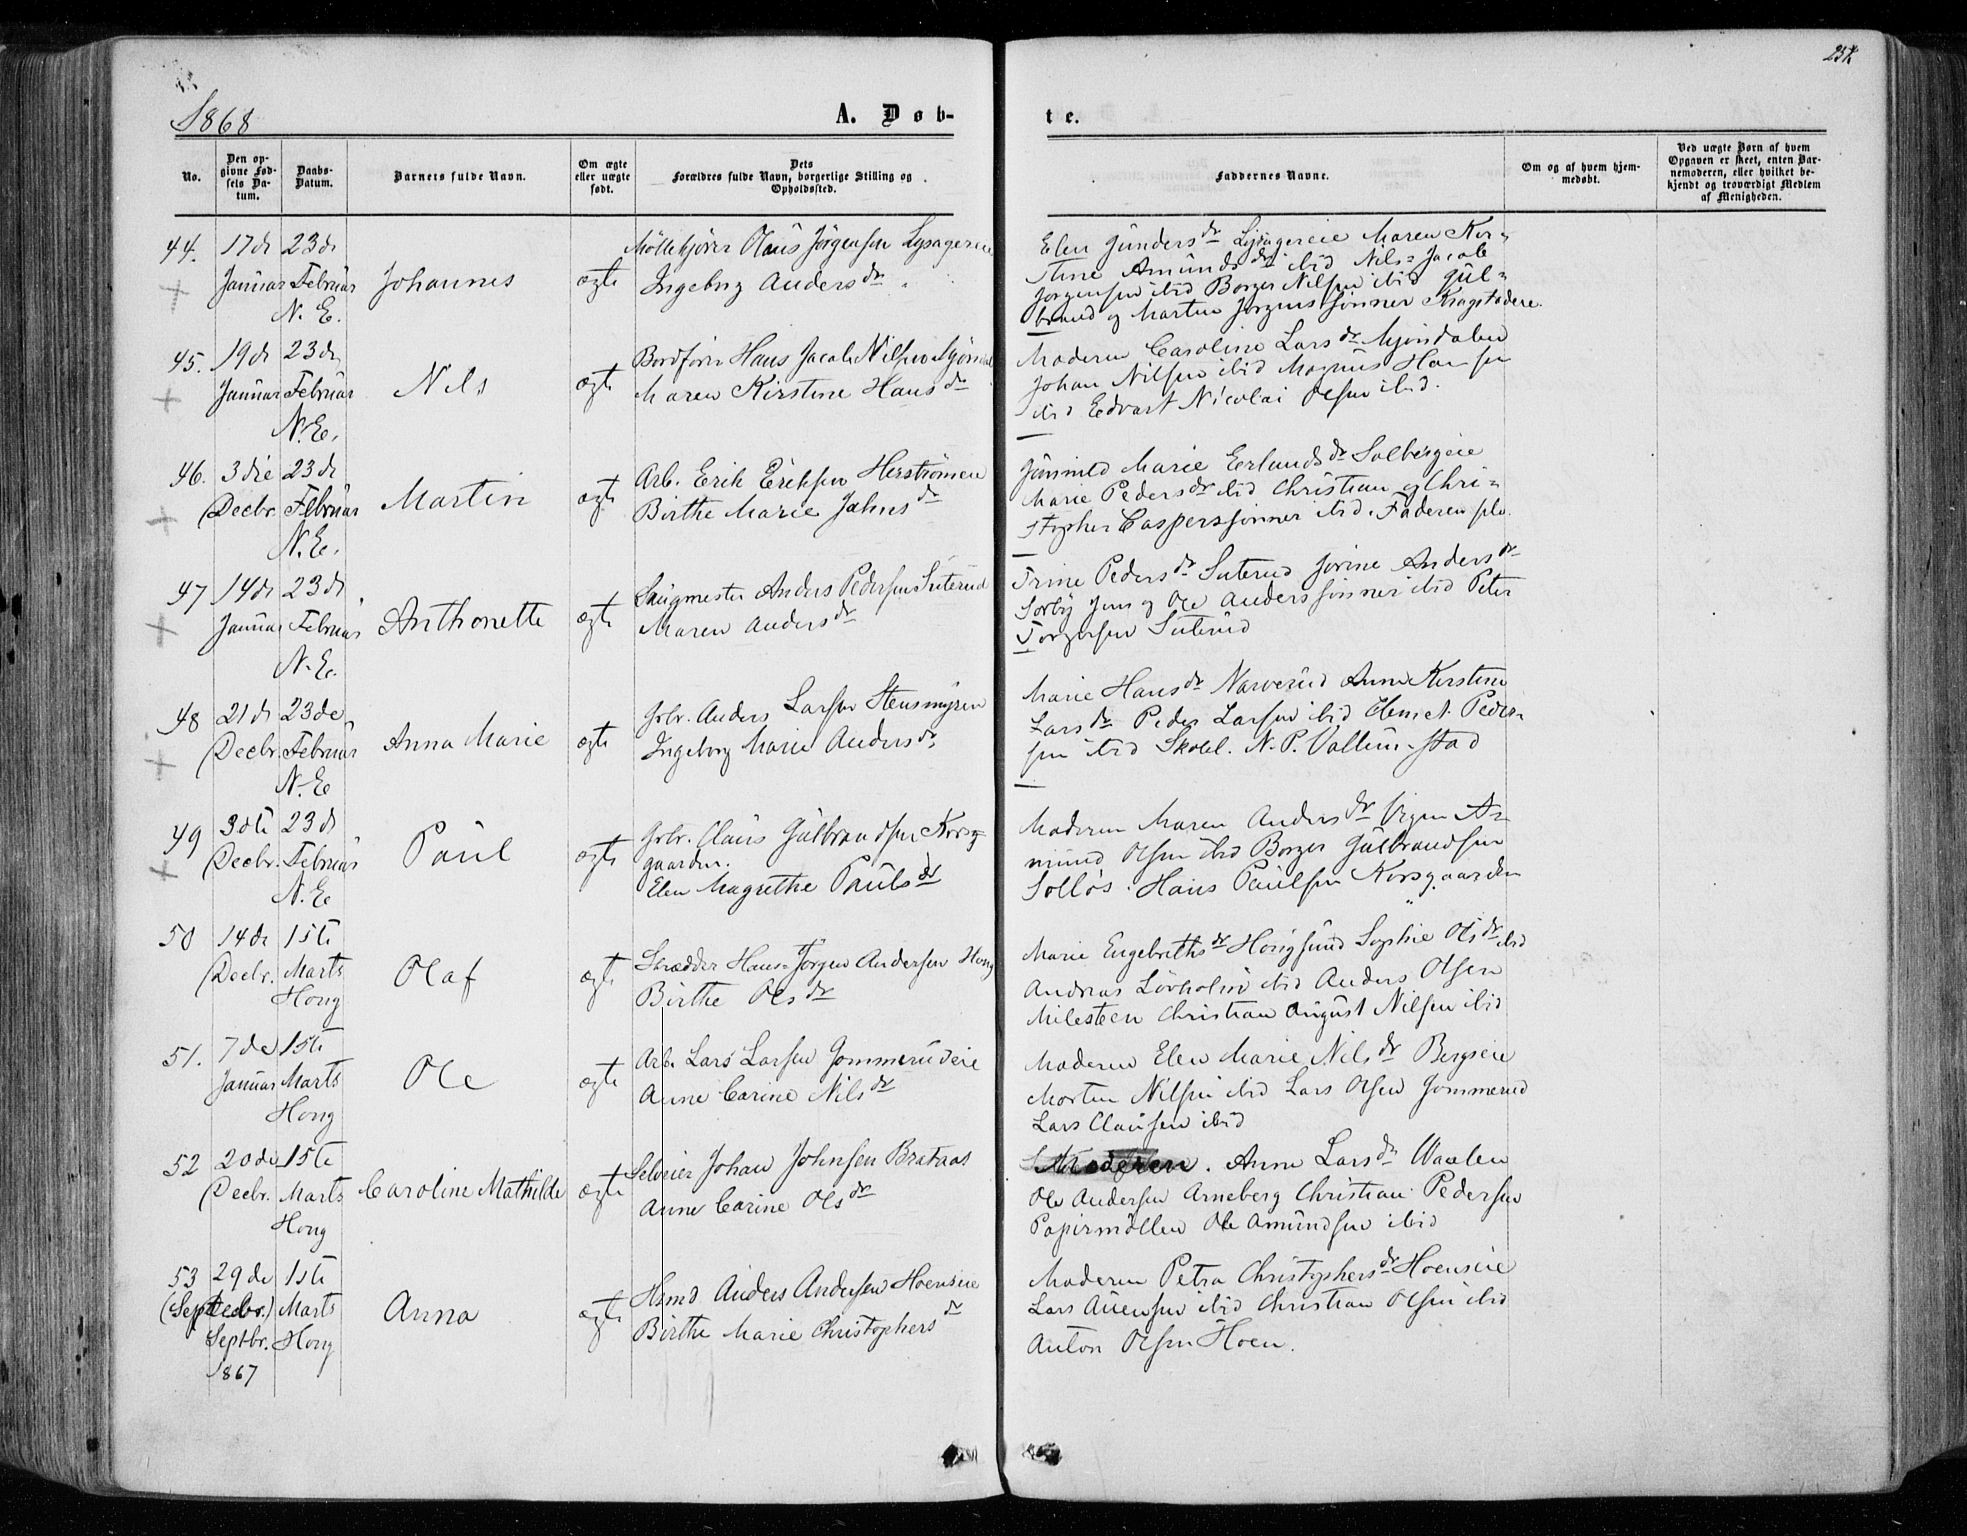 252
1868
A. Døb-
te.
No.
Den op-
givne Fød-
sels Da-
tum.
Daabs-
Datum.
Barnets fulde Navn.
Om ægte
eller uægte
født.
Dets
Forældres fulde Navn, borgerlige Stilling og
Opholdssted.
Faddernes Navne.
Om og af hvem hjem-
medøbt.
Ved uægte Børn af hvem
Opgaven er skeet, enten Bar-
nemoderen, eller hvilket be-
kjendt og troværdigt Medlem
af Menigheden.
44. 17de Januar 23de Februar N. E. Johannes ægte
Møllekjører Olaus Jørgensen Lysagereie
Ingebrg Andersdr
Elen Gundersdr Lysagereie Maren Kir-
stine Amundsdr ibid Nils Jacob
Jørgensen ibid Borger Nilsen ibid Gul-
brand og Martin Jørgenssønner Kragstadeie
45. 19de Januar 23de Februar N. E. Nils ægte
Bordfører Hans Jacob Nilsen Mjøndal
Maren Kirstine Hansdr
Moderen Caroline Larsdr Mjøndalen
Johan Nilsen ibid Magnus Hansen
ibid Edvart Nicolai Olsen ibid.
46. 3die Decbr. 23de Februar N. E. Martin ægte
Arb. Erik Eriksen Herstrømen
Birthe Marie Jahnsdr
Gunnild Marie Erlandsdr Solbergeie
Marie Pedersdr ibid Christian og Chri-
stopher Casperssønner ibid. Faderen
47 14de Januar 23de Februar N. E. Anthonette ægte
Saugmester Anders Pedersen Suterud
Maren Andersdr
Trine Pedersdr Suterud Jørine Andersdr
Sørby Jens og Ole Anderssønner ibid Peter
Torgersen Suterud
48 21de Decbr. 23de Februar N. E. Anna Marie ægte
Grbr. Anders Larsen Stensmyren
Ingeborg Marie Andersdr
Marie Hansdr Narverud Anne Kirstine
Larsdr Peder Larsen ibid Peder-
sen ibid Skolel. N. P. Vallumstad
49 30te Decbr. 23de Februar N. E Paul ægte
Grbr. Claus Gulbrandsen Kors-
gaarden.
Elen Magrethe Paulsdr
Moderen Maren Andersdr Vigen A-
mund Olsen ibid Borger Gulbrandsen
Solløs. Hans Paulsen Korsgaarden
50 14de Decbr. 1ste Marts Houg Olaf ægte
Skrædder Hans Jørgen Andersen Houg
Birthe Olsdr
Marie Engebrethsdr Hougsund Sophie Olsdr ibid
Andreas Løvholm ibid Anders Olsen
Milesteen Christian August Nilsen ibid
51. 7de Januar 1ste Marts Houg Ole ægte
Arb. Lars Larsen Gommerudeie
Anne Carine Nilsdr
Moderen Elen Marie Nilsdr Bergseie
Morten Nilsen ibid Lars Olsen Gommerud
Lars Clausen ibid
52 20de Decbr. 1ste Marts Houg Caroline Mathilde ægte
Selveier Johan Johnsen Brataas
Anne Carine Olsdr
Moderen. Anne Larsdr Waalen
Ole Andersen Arneberg Christian Pedersen
Papirmøllen Ole Amundsen ibid
53 29de (Sept Decbr.) Septbr. 1867 1ste Marts Houg Anna ægte
Hsmd Anders Andersen Hoenseie
Birthe Marie Christophersdr
Moderen Petra Christophersdr Hoenseie
Lars Auensen ibid Christian Olsen ibid
Anton Olsen Hoen.